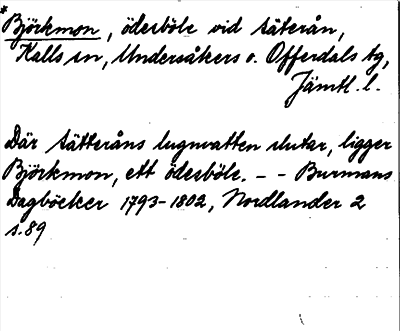 * Björkmon, ödesböle vid Säterån,
Kalls sn, Undersåkers o. Offerdals tg,
Jämtl. l.
Där Sätteråns lugnvatten slutar, ligger
Björkmon, ett ödesböle. - - Burmans
Dagböcker 1793-1802, Nordlander 2
s. 89